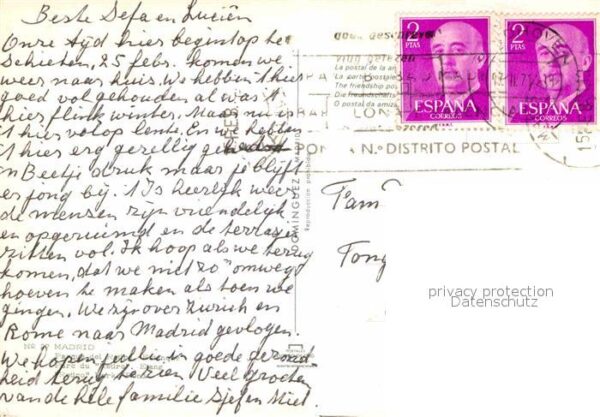 Beste Sefa en Lucien
Onze tijd hier begint op te
Schieten, 25 febr. komen we
weer naar huis. We hebben 't hier
goed vol gehouden al was 't
hier flink winter. Maar nu is
't hier volop lente. En we hebben
't hier erg gezellig
en Beetje druk maar je blijft
er jong bij. 't Is heerlijk weer
de mensen zijn vriendelijk
en opgeruimd en de terrasjes
zitten vol. Ik hoop als we terug
komen, dat we niet zo'n omweg
hoeven te maken als toen we
gingen. We zijn over Zurich en
Rome naar Madrid gevlogen.
We hopen jullie in goede gezond
heid terug te zien. Veel groeten
van de hele familie Sjef en Miet.
MADRID
DOMINGUEZ
Fam
Tony
2
PTAS
ESPAÑA
CORREOS
2
PTAS
ESPAÑA
CORREOS
La postal de la
La carte postale
The friendship post
Die freundschafts
O postal da amiza
PONGA N.º DISTRITO POSTAL
privacy protection
Datenschutz